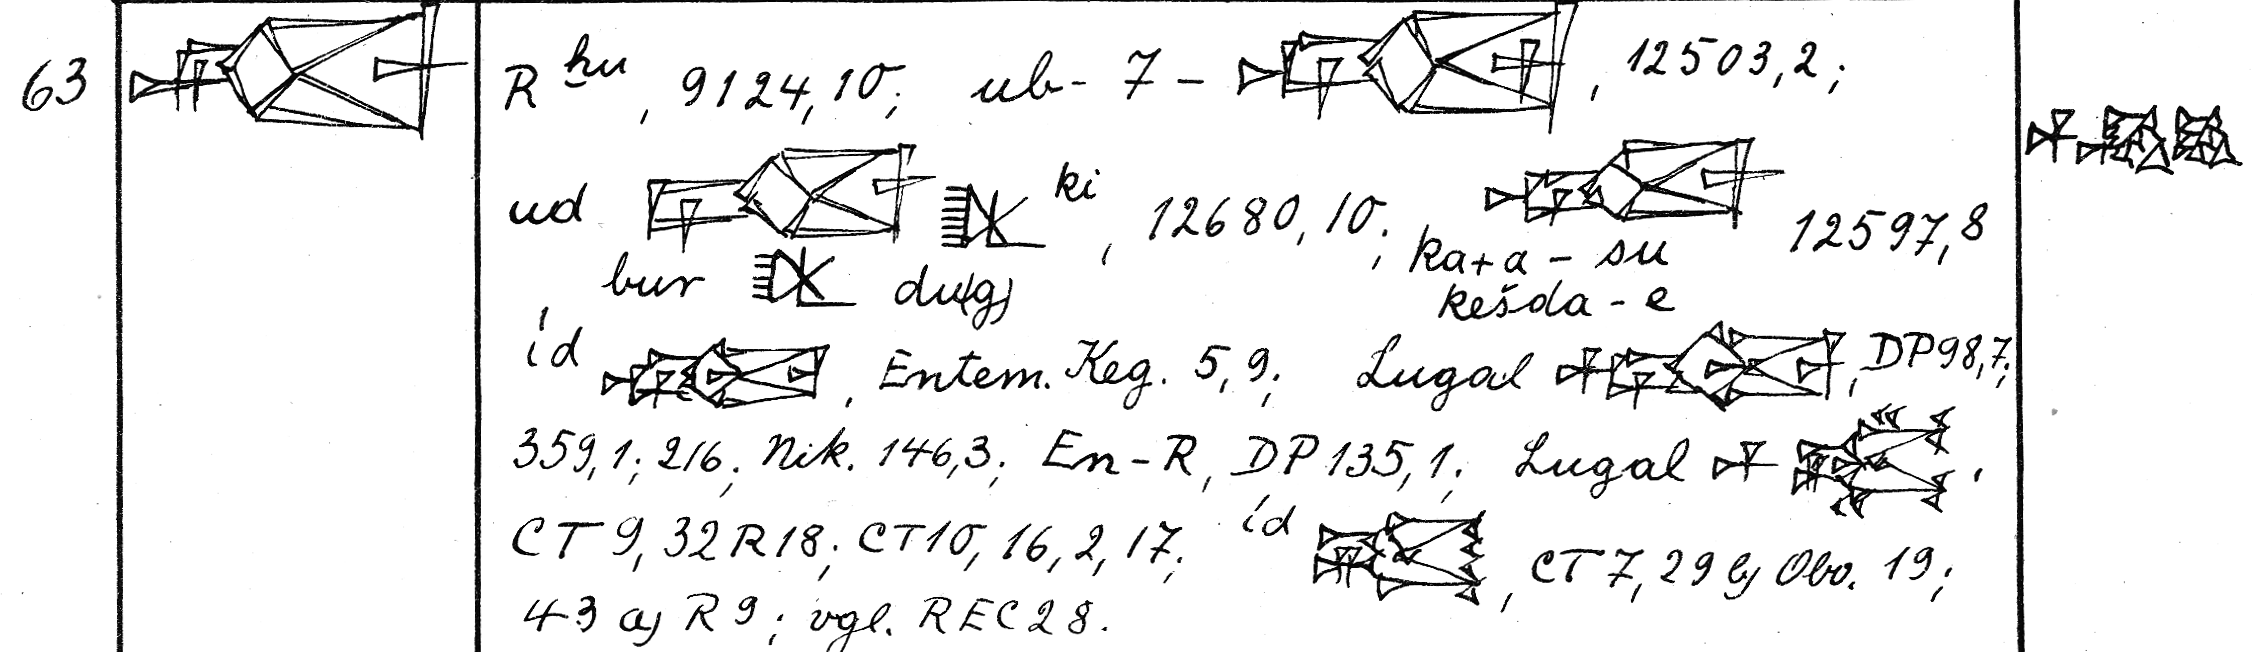 63 R ḫu, 9124,10; ub-7-, 12503,2;
ud ki, 12680,10; 12597,8
bur du(g) ka+a-su
kešda-e
íd, Entem. Keg. 5,9; Lugal, DP 98,7;
359,1; 216; Nik. 146,3; En-R, DP 135,1; Lugal,
CT 9, 32 R 18; CT 10, 16, 2, 17; íd, CT 7, 29 b) Obv. 19;
43 a) R 9; vgl. REC 28.